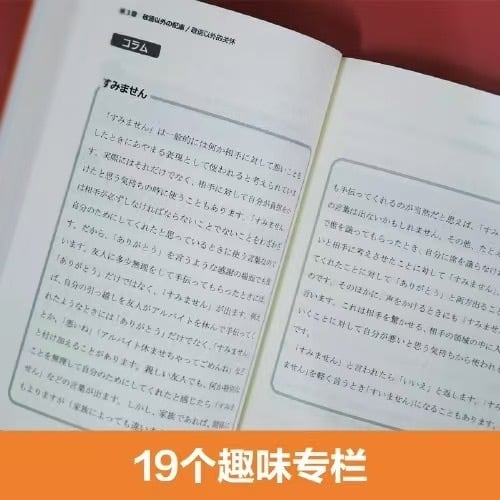 第3章 敬語以外の配慮/敬语以外的关怀
コラム
すみません
「すみません」は一般的には何か相手に対して悪いことを
したときにあやまる表現として使われると考えられていま
す。実際にはそれだけでなく、相手に対して自分が負担をか
けたと思う気持ちの時に使うこともあります。「すみません」
は相手が必ずしなければならないことでないことをわざわざ
自分のためにしてくれたと思っているときに使う言葉なので
す。だから、「ありがとう」を言うような感謝の場面でも使
います。友人に多少無理をして手伝ってもらったときには、
「ありがとう」だけではなく、「すみません」が出ます。例え
ば、自分の引っ越しを友人がアルバイトを休んで手伝ってく
れたようなときには「ありがとう」だけでなく、「すみません」
とか、「悪いね」「アルバイト休ませちゃってごめんね」など
と付け加えることがあります。親しい友人でも、何か特別な
ことを無理して自分のためにしてくれたと感じたら「すみま
せん」などの言葉が出ます。しかし、家族であれば、
もよりますが(家族によっても違いま
も手伝ってくれるのが当然だと思えば、「すみ
の言葉は出ないかもしれません。その他、たと
で席を譲ってもらったとき、自分に席を譲らな
いと相手に考えさせたことに対して「すみません」
てくれたことに対して「ありがとう」と両方出ること
です。そのほかに、声をかけるときにも「すみません」
言います。これは相手を驚かせる、相手の領域の中に入
いくことに対して自分が悪いと思う気持ちから使われ
す。
「すみません」と言われたら「いいえ」と返します。「すみ
ません」を軽く言うとき「すいません」になることもあります。
19个趣味专栏